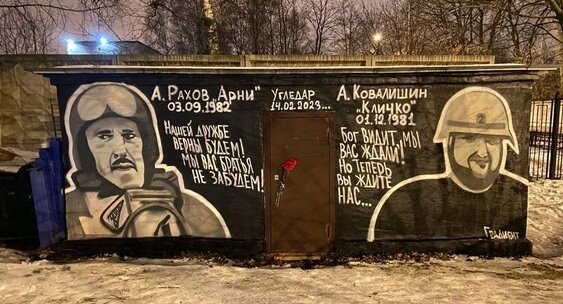 А. Рахов „Арни"
03.09.1982
Нашей дружбе
верны будем!
Мы вас братья
не забудем!
Угледар
14.02.2023...
А. Ковалишин
„Кличко"
01.12.1981
Бог видит, мы
вас ждали!
Но теперь
вы ждите
нас...
Градиент